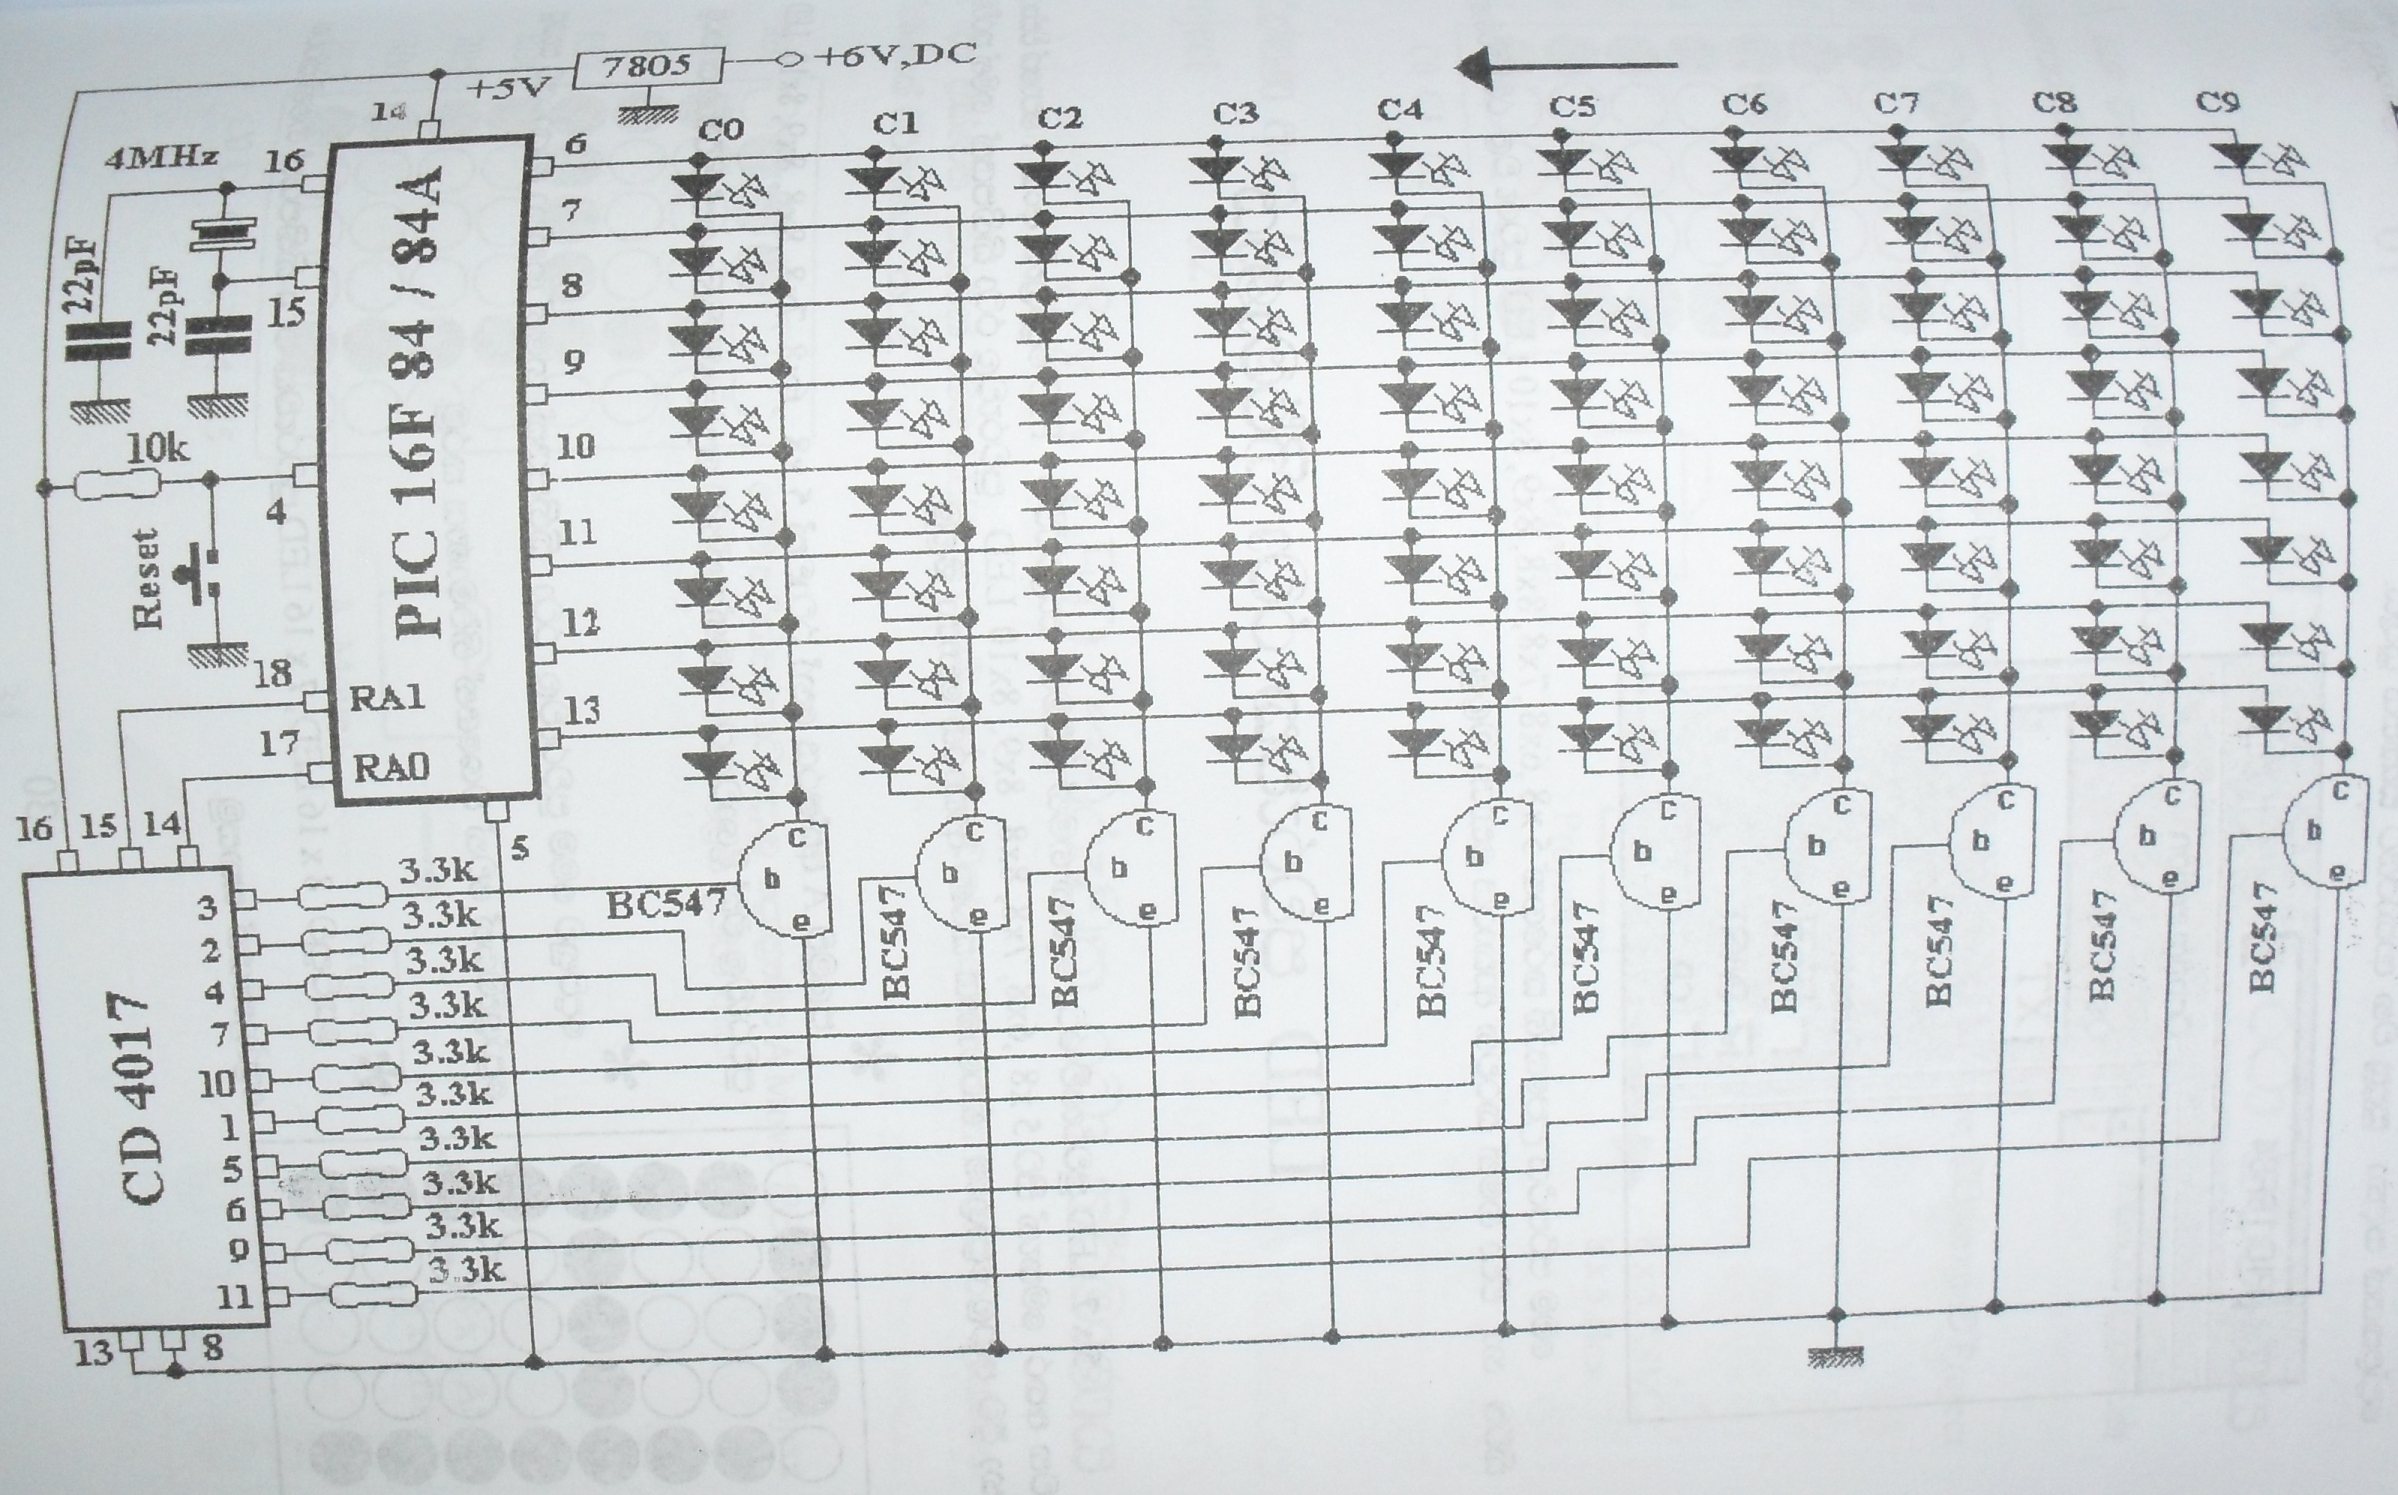 +6V,DC
7805
+5V
14
4MHz
16
22pF
22pF
15
10k
4
Reset
18
RA1
17
RA0
PIC 16F 84 / 84A
6
7
8
9
10
11
12
13
5
C0 C1 C2 C3 C4 C5 C6 C7 C8 C9
16 15 14
CD 4017
3 3.3k
2 3.3k
4 3.3k
7 3.3k
10 3.3k
1 3.3k
5 3.3k
6 3.3k
9 3.3k
11 3.3k
13 8
c c c c c c c c c c
b b b b b b b b b b
e e e e e e e e e e
BC547 BC547 BC547 BC547 BC547 BC547 BC547 BC547 BC547 BC547